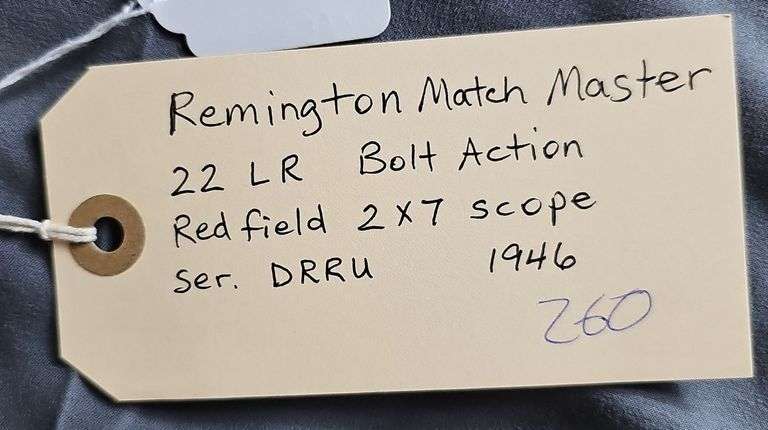 Remington Match Master
22 LR Bolt Action
Redfield 2X7 scope
Ser. DRRU 1946
260